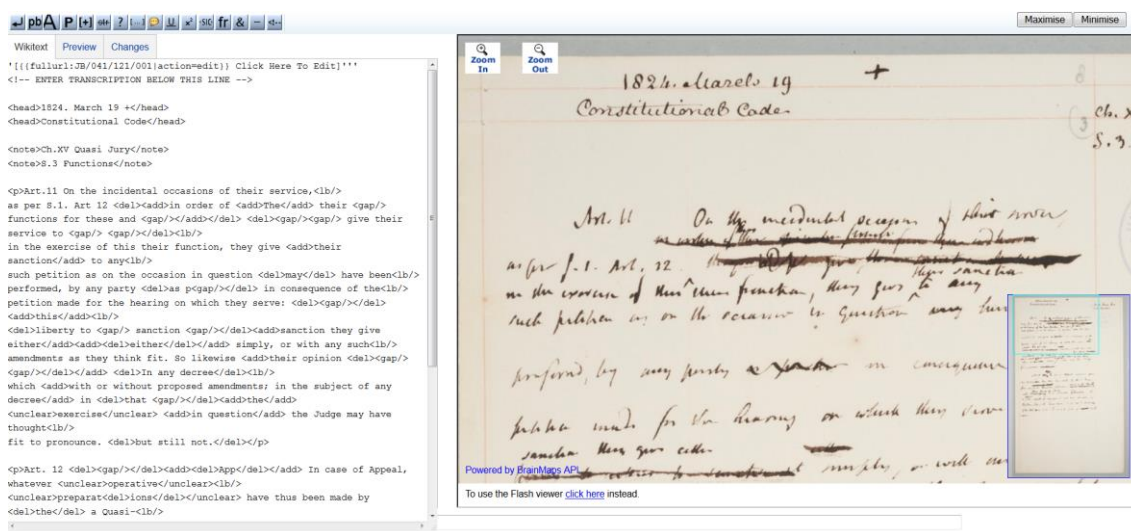 pb A P [+] ? [...] U x² SIC fr & —
Maximise Minimise
Wikitext Preview Changes
'[{{fullurl:JB/041/121/001|action=edit}} Click Here To Edit]'''
<!-- ENTER TRANSCRIPTION BELOW THIS LINE -->
<head>1824. March 19 +</head>
<head>Constitutional Code</head>
<note>Ch.XV Quasi Jury</note>
<note>S.3 Functions</note>
<p>Art.11 On the incidental occasions of their service,<lb/>
as per S.1. Art 12 <del><add>in order of <add>The</add> their <gap/>
functions for these and <gap/></add></del> <del><gap/><gap/> give their
service to <gap/> <gap/></del><lb/>
in the exercise of this their function, they give <add>their
sanction</add> to any<lb/>
such petition as on the occasion in question <del>may</del> have been<lb/>
performed, by any party <del>as p<gap/></del> in consequence of the<lb/>
petition made for the hearing on which they serve: <del><gap/></del>
<add>this</add><lb/>
<del>liberty to <gap/> sanction <gap/></del><add>sanction they give
either</add><add><del>either</del></add> simply, or with any such<lb/>
amendments as they think fit. So likewise <add>their opinion <del><gap/>
<gap/></del></add> <del>In any decree</del><lb/>
which <add>with or without proposed amendments; in the subject of any
decree</add> in <del>that <gap/></del><add>the</add>
<unclear>exercise</unclear> <add>in question</add> the Judge may have
thought<lb/>
fit to pronounce. <del>but still not.</del></p>
<p>Art. 12 <del><gap/></del><add><del>App</del></add> In case of Appeal,
whatever <unclear>operative</unclear><lb/>
<unclear>preparat<del>ions</del></unclear> have thus been made by
<del>the</del> a Quasi-<lb/>
Zoom In
Zoom Out
1824. March 19 +
8
Constitutional Code
3
Ch. X
S. 3.
Art. 11 On the incidental occasions of their
as per S. 1. Art. 12.
their sanction
in the exercise of this their function, they give to any
such petition as on the occasion in question may have
by any party in consequence
petition made for the hearing on which they serve
sanction they give either
simply, or with
Powered by BrainMaps API
To use the Flash viewer click here instead.